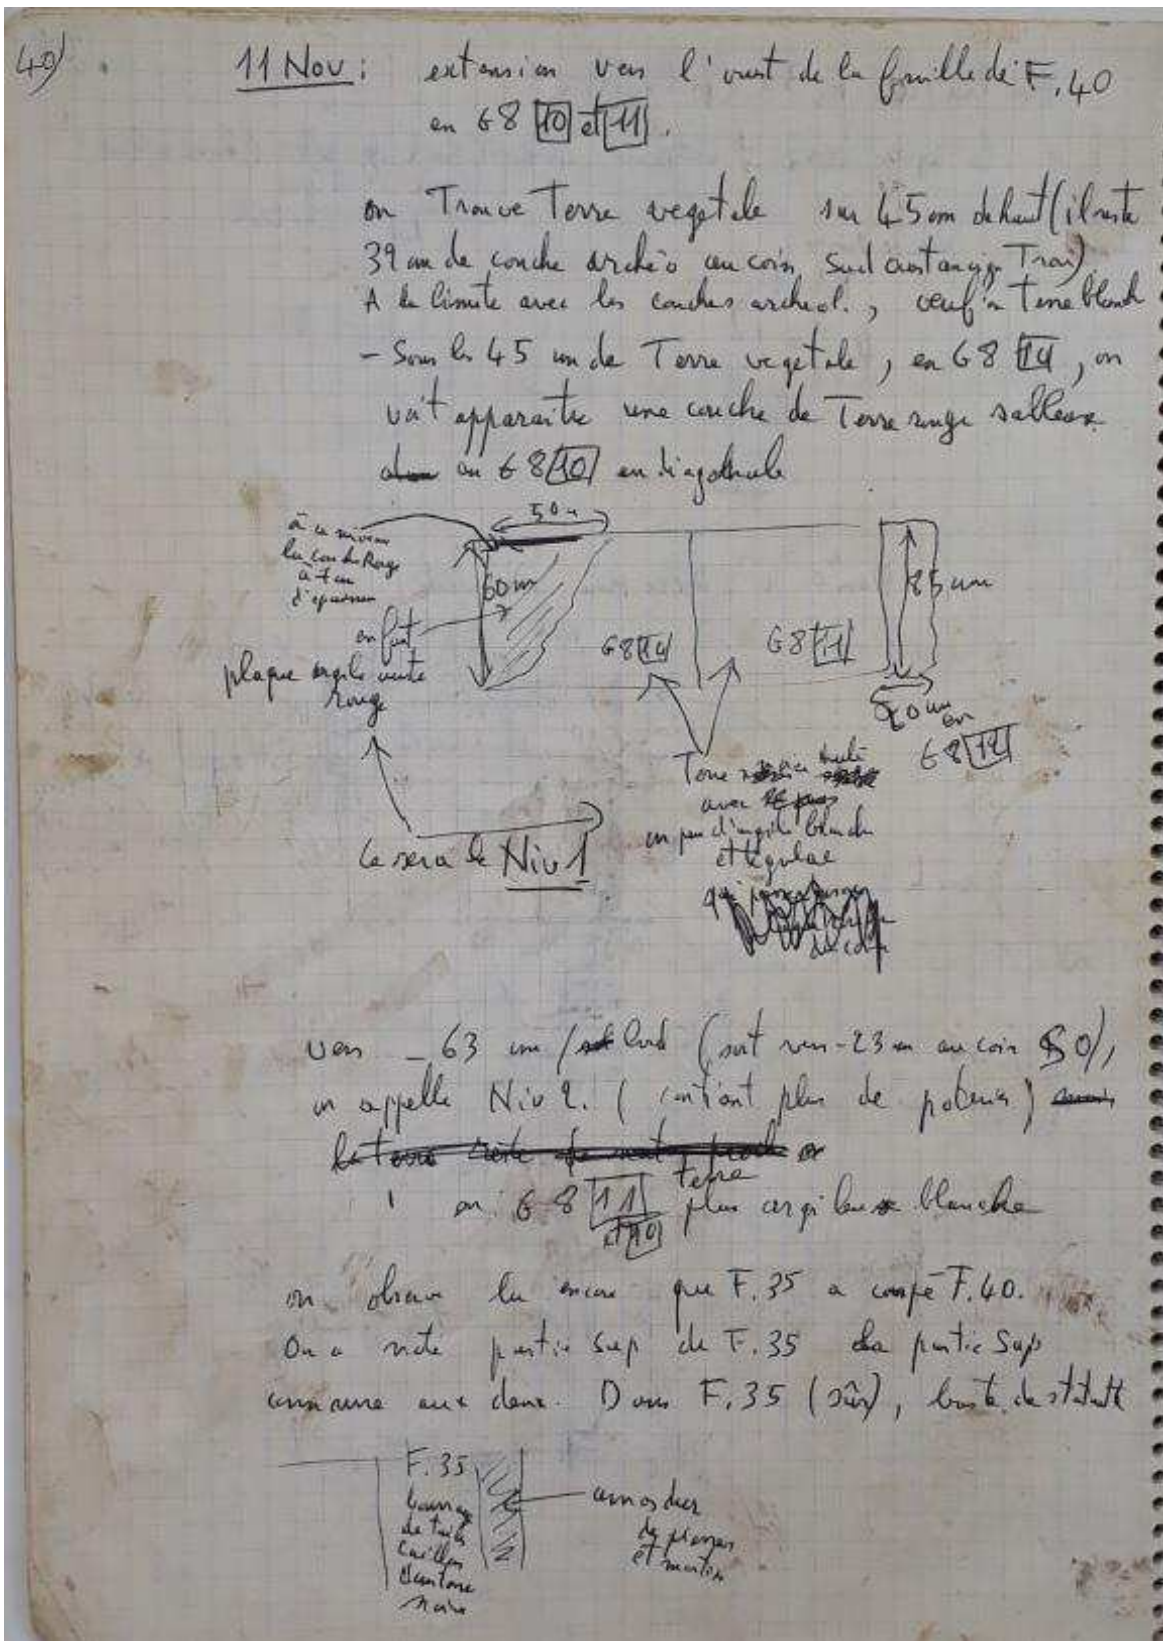 40)
11 Nov : extension vers l'ouest de la fouille de F.40
en G8 10 et 11.
on Trouve Terre vegetale sur 45 cm de haut (il reste
39 cm de couche archéo au coin Sud ouest Trou)
A la limite avec les couches archéol., terre blanche
- Sous les 45 cm de Terre vegetale, en G8 10, on
voit apparaitre une couche de Terre rouge sableuse
en G8 10 en diagonale
50
à ce niveau
la couche Rouge
d'épaisseur
60 cm
85 cm
en fait
plaque argile cuite
rouge
G8 10
G8 11
20 cm
en
G8 12
Terre
avec
un peu d'argile blanche
et tegulae
Ce sera le Niv 1
vers - 63 cm / (soit vers -23 cm au coin SO),
on appelle Niv 2. (contient plus de poteries)
en G8 11 terre plus argileuse blanche
et 10
on observe la encore que F.35 a coupé F.40.
On a vidé partie sup de F.35 la partie Sup
commune aux deux. Dans F.35 (sûr), buste de statuette
F.35
bourrage
de tuiles
cailloux
terre
noire
amas dur
de pierres
et mortier